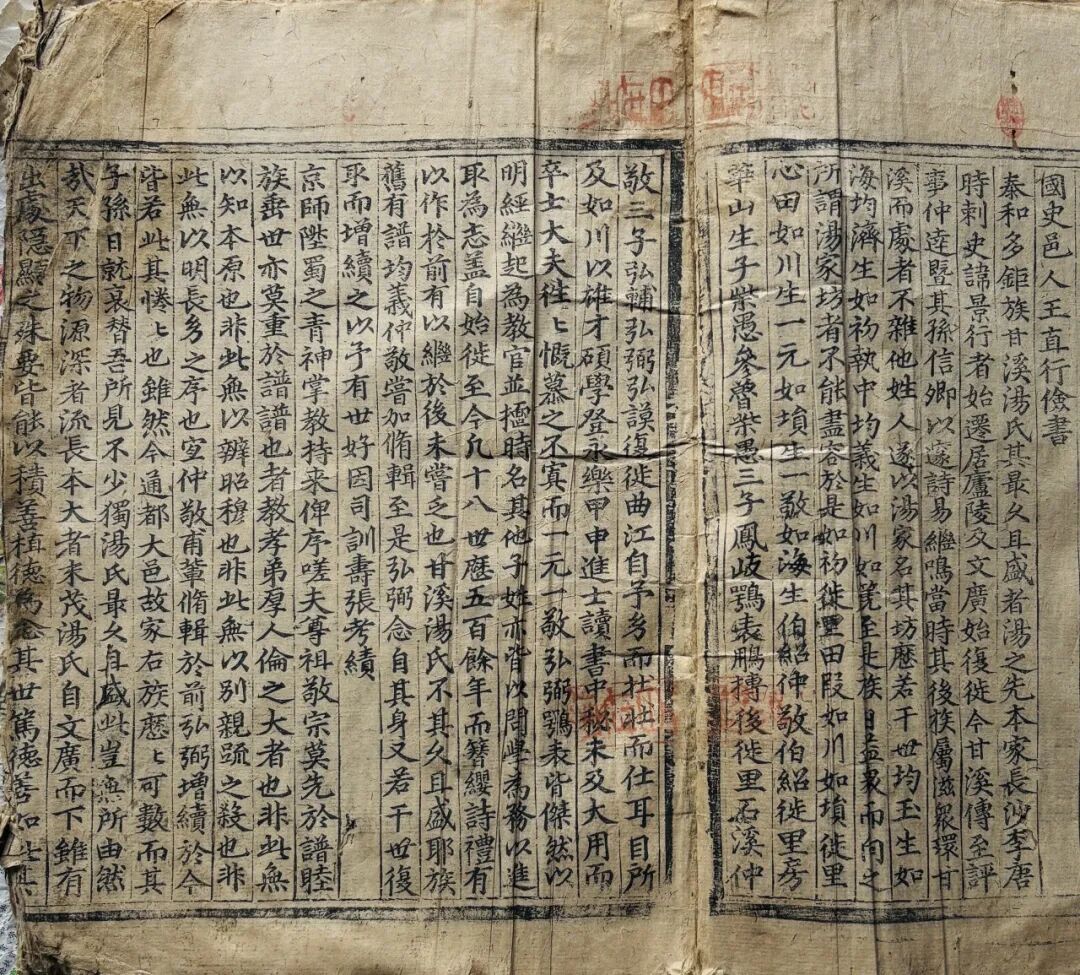 國史邑人王直行儉書
泰和多鉅族甘溪湯氏其最久且盛者湯之先本家長沙李唐
時刺史諱景行者始遷居廬陵父文廣始復徙今甘溪傳至評
事仲逵暨其孫信卿以邃詩易繼鳴當時其後族屬滋衆環甘
溪而處者不雜他姓人遂以湯家名其坊歷若干世均玉生如
海均濟生如礽執中均義生如川如箎至是族日益衆而向之
所謂湯家坊者不能盡容於是如礽徙里田段如川如塤徙里
心田如川生一元如塤生一敬如海生伯紹仲敬伯紹徙里房
華山生子柴愚參魯柴愚三子鳳岐鶚表鵬摶後徙里石溪仲
敬三子弘輔弘弼弘謨復徙曲江自予乡而壮壮而仕耳目所
及如川以雄才碩學登永樂甲申進士讀書中秘未及大用而
卒士大夫徃〻慨慕之不寘而一元一敬弘弼鶚表皆傑然以
明經繼起為教官並擅時名其他子姓亦皆以問學為務以進
取為志盖自始徙至今凡十八世歷五百餘年而簪纓詩禮有
以作於前有以繼於後未嘗乏也甘溪湯氏不其久且盛耶族
舊有譜均義仲敬嘗加脩輯至是弘弼念自其身又若干世復
取而增續之以予有世好因司訓壽張考績
京師陞蜀之青神掌教持来俾序嗟夫尊祖敬宗莫先於譜睦
族垂世亦莫重於譜譜也者教孝弟厚人倫之大者也非此無
以知本原也非此無以辨昭穆也非此無以別親疏之殺也非
此無以明長乡之序也宜仲敬甫輩脩輯於前弘弼增續於今
皆若此其惓〻也雖然今通都大邑故家右族歷〻可數而其
子孫日就衰替吾所見不少獨湯氏最久且盛此豈無所由然
㢤天下之物源深者流長本大者末茂湯氏自文廣而下雖有
出處隱顯之殊要皆能以積善植德為念其世篤德善如此其